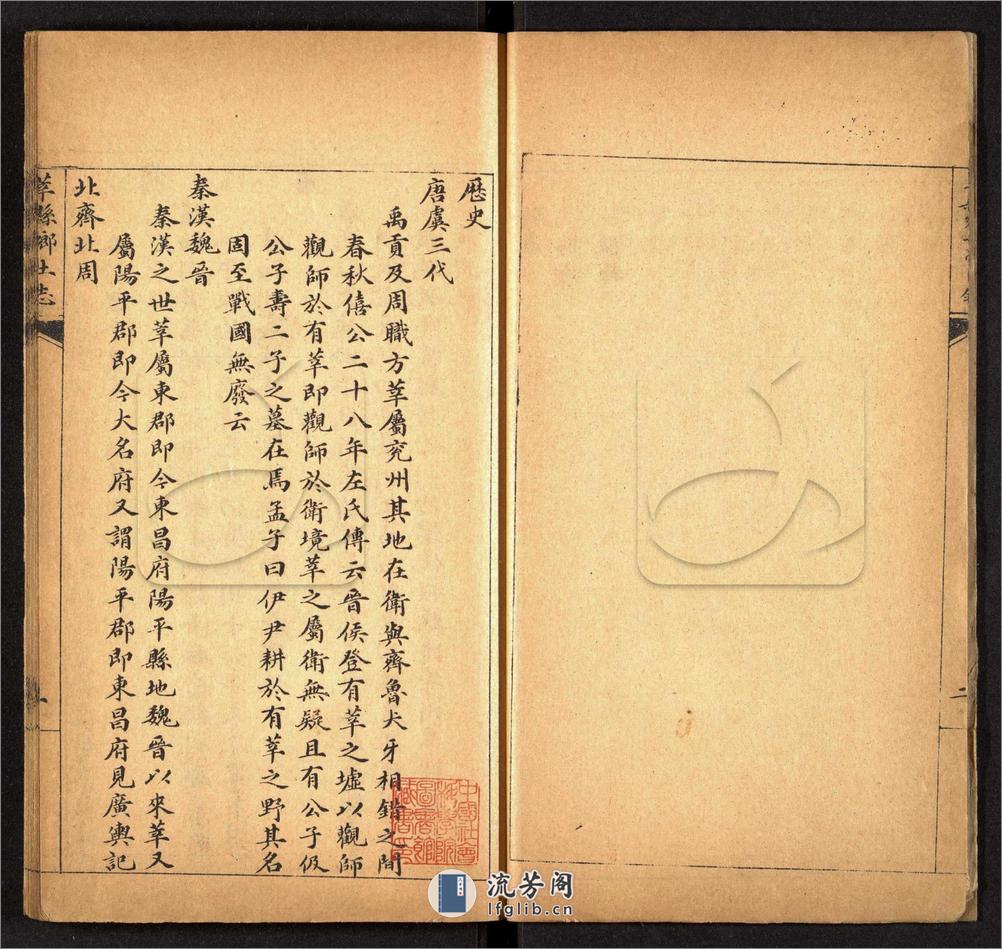 歷史
唐虞三代
禹貢及周職方莘屬兖州其地在衛與齊魯犬牙相錯之間
春秋僖公二十八年左氏傳云晉侯登有莘之墟以觀師
觀師於有莘即觀師於衛境莘之屬衛無疑且有公子伋
公子壽二子之墓在焉孟子曰伊尹耕於有莘之野其名
固至戰國無廢云
秦漢魏晉
秦漢之世莘屬東郡即今東昌府陽平縣地魏晉以來莘又
屬陽平郡即今大名府又謂陽平郡即東昌府見廣輿記
北齊北周
莘縣鄉土志
一
二
中國社會科學院圖書館藏書印
流芳阁
lfglib.cn